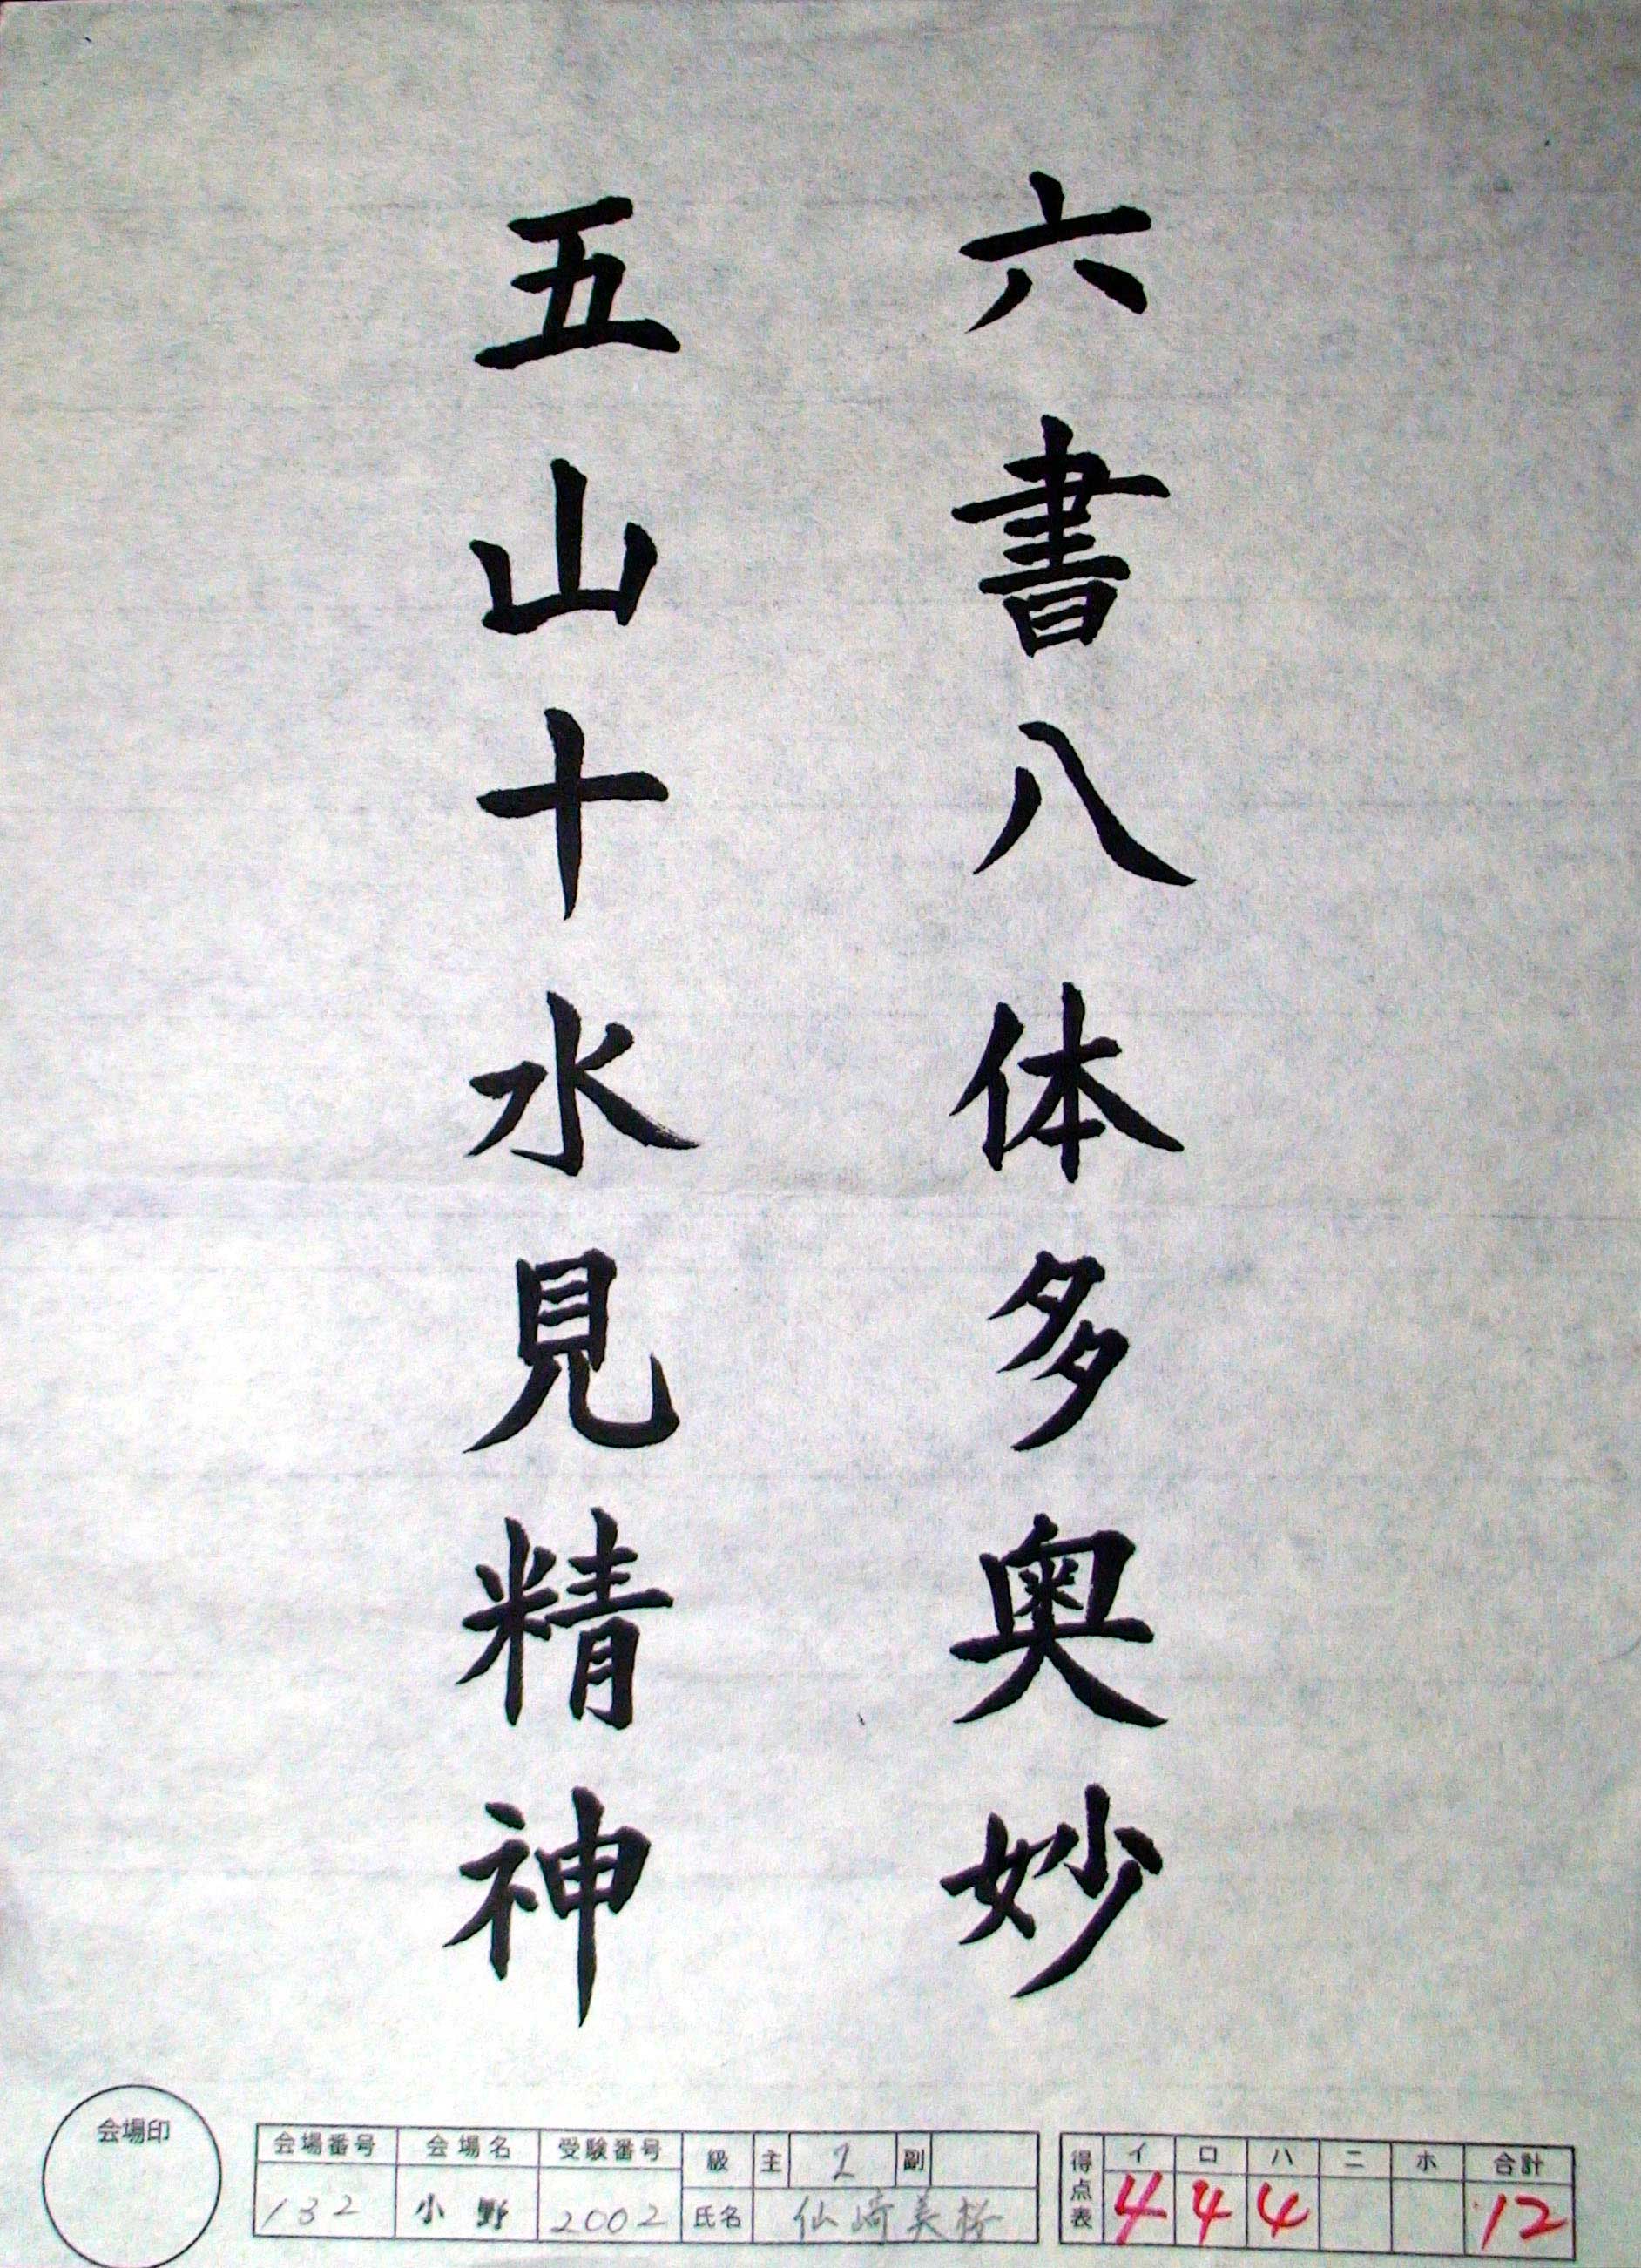 六書八体多奥妙
五山十水見精神
会場印
会場番号 会場名 受験番号 級 主 2 副
132 小野 2002 氏名 仙崎美桜
得点表 イ ロ ハ ニ ホ 合計
4 4 4 12